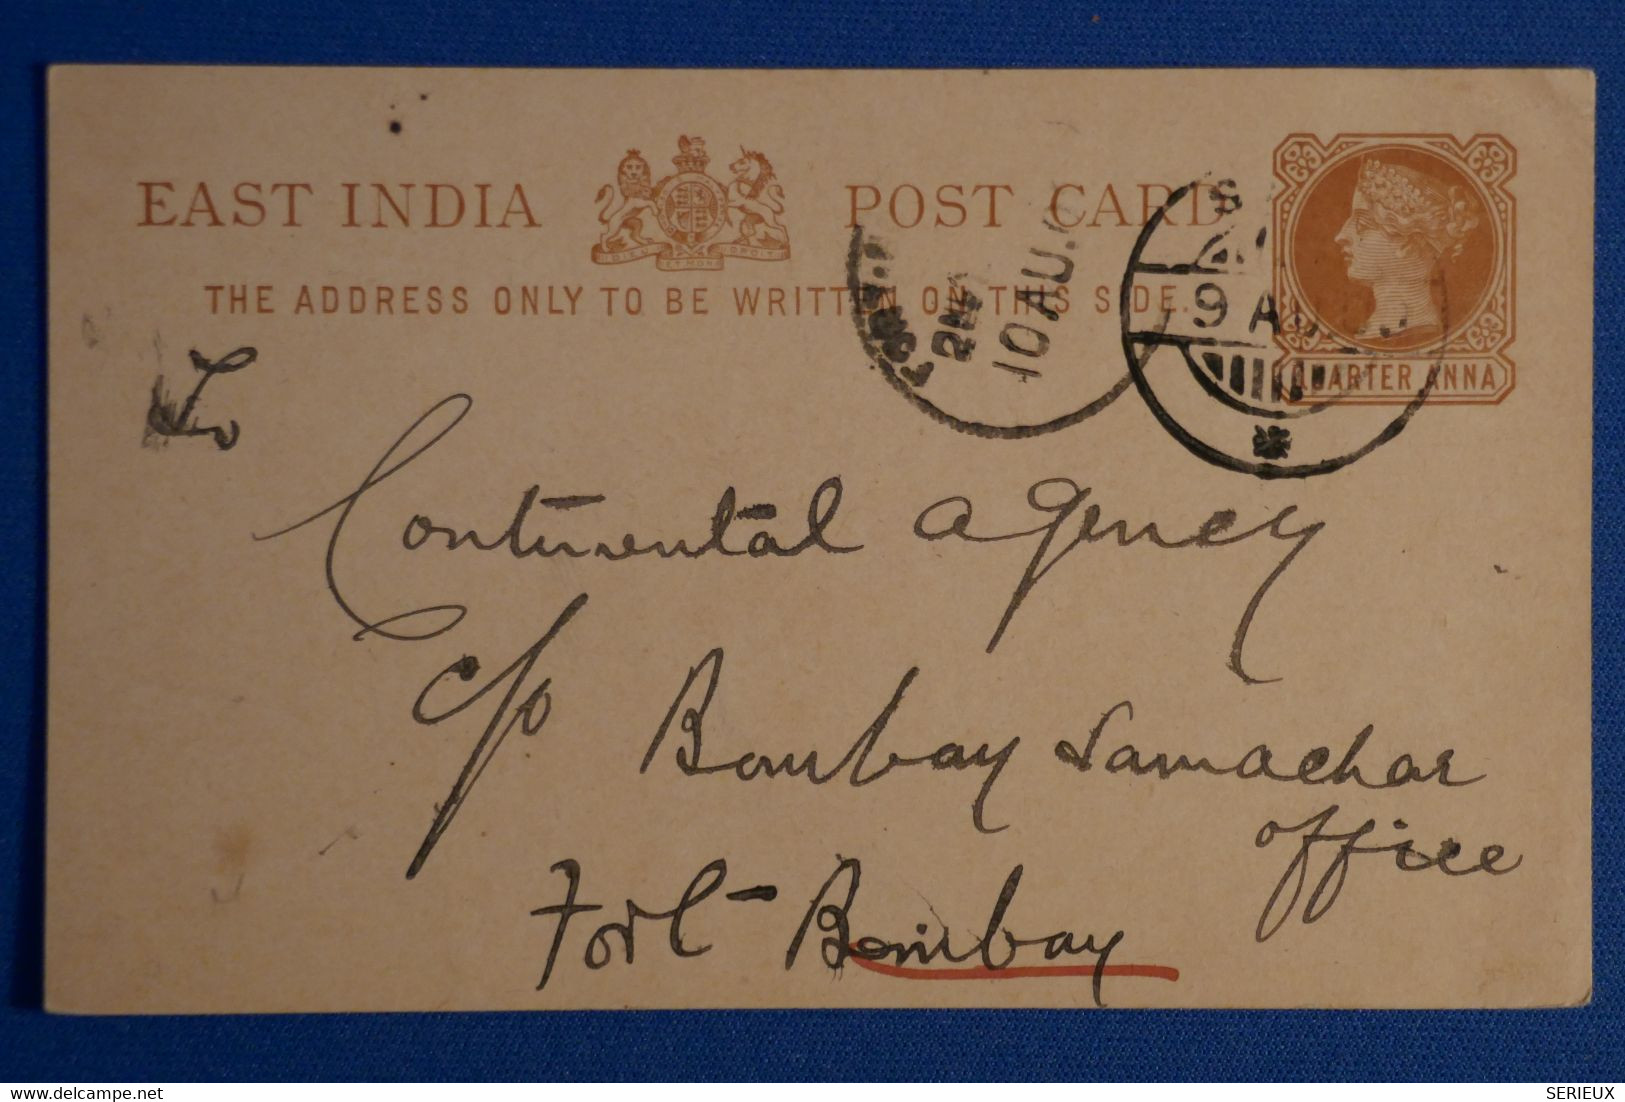 EAST INDIA POST CARD
THE ADDRESS ONLY TO BE WRITTEN ON THIS SIDE.
QUARTER ANNA
10 AU
9 AU
To
Continental Agency
c/o Bombay Samachar
office
Fort - Bombay
SERIEUX
www.delcampe.net